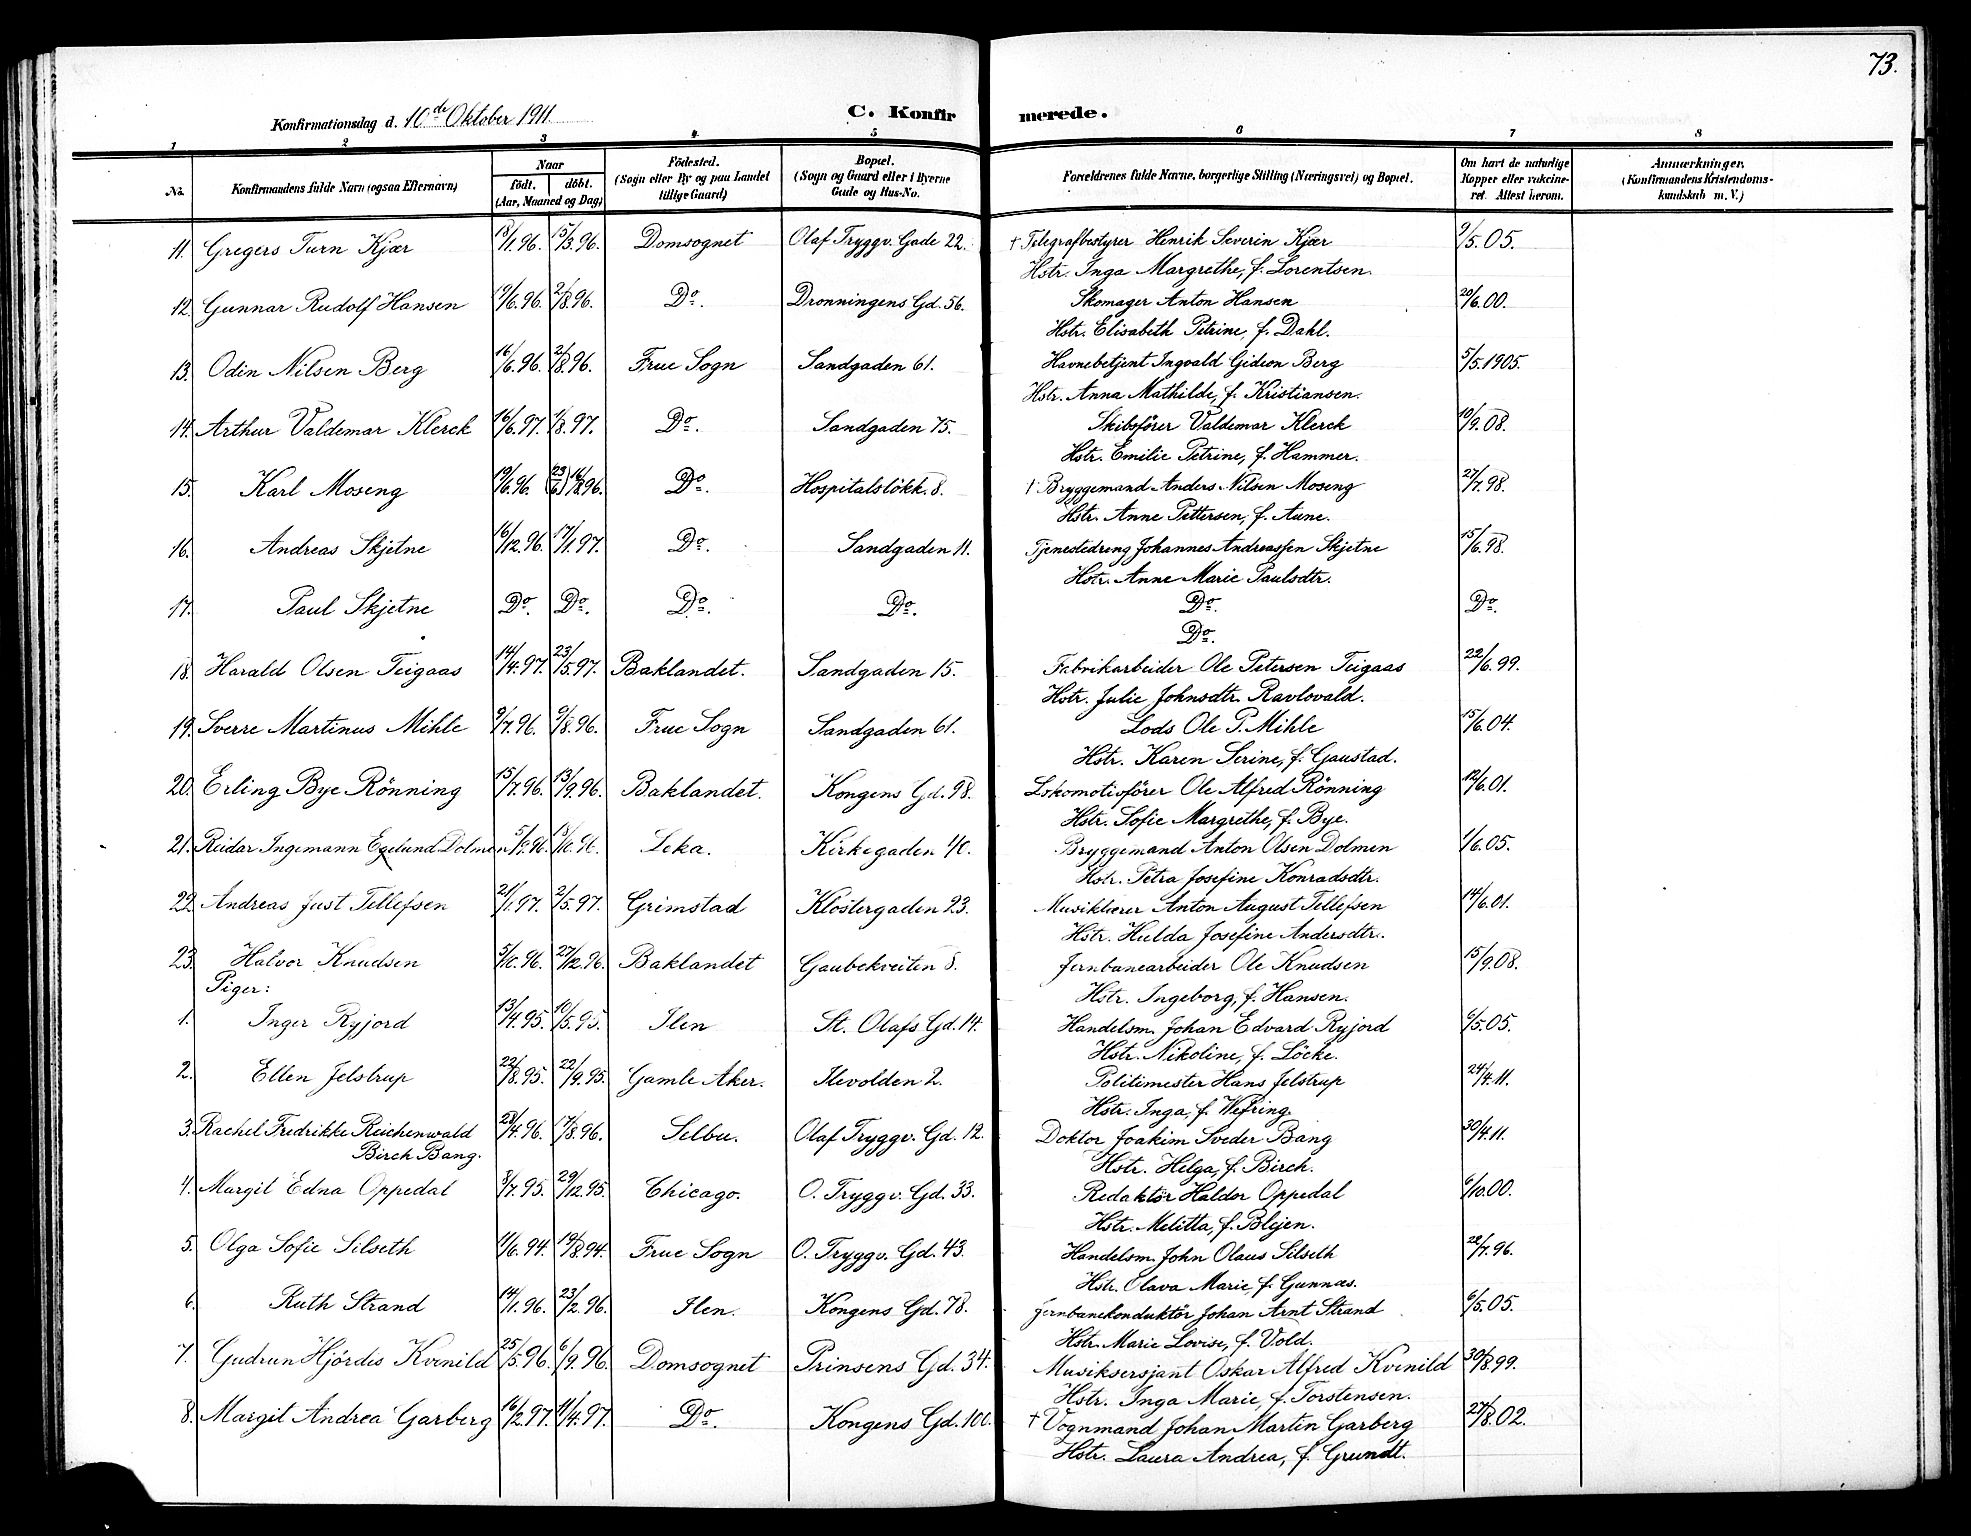 73.
Konfirmationsdag d. 10de Oktober 1911.
C. Konfirmerede.
1 2 3 4 5 6 7 8
No. Konfirmandens fulde Navn (ogsaa Efternavn) Naar födt. döbt. (Aar, Maaned og Dag) Födested. (Sogn eller By og paa Landet tillige Gaard) Bopæl. (Sogn og Gaard eller i Byerne Gade og Hus-No. Forældrenes fulde Navne, borgerlige Stilling (Næringsvei) og Bopæl. Om havt de naturlige Kopper eller vaccineret. Attest herom. Anmærkninger. (Konfirmandens Kristendomskundskab m. V.)
11. Gregers Turn Kjær 18/1.96. 15/3.96. Domsognet Olaf Tryggv. Gade 22. † Telegrafbestyrer Henrik Severin Kjær 9/5.05.
Hstr. Inga Margrethe, f. Lorentsen.
12. Gunnar Rudolf Hansen 19/6.96. 2/8.96. Do. Dronningens Gd. 56. Skomager Anton Hansen 20/6.00.
Hstr. Elisabeth Petrine, f. Dahl.
13. Odin Nilsen Berg 16/6.96. 2/8.96. Frue Sogn Sandgaden 61. Havnebetjent Ingvald Gideon Berg 5/5.1905.
Hstr. Anna Mathilde, f. Kristiansen.
14. Arthur Valdemar Klerck 16/6.97. 1/8.97. Do. Sandgaden 75. Skibsförer Valdemar Klerck 10/9.08.
Hstr. Emilie Petrine, f. Hammer.
15. Karl Moseng 19/6.96. (23/6) 16/8.96. Do. Hospitalslökk. 8. † Bryggemand Anders Nilsen Moseng 27/7.98.
Hstr. Anne Pettersen, f. Aune.
16. Andreas Skjetne 16/12.96. 17/1.97. Do. Sandgaden 11. Tjenestedreng Johannes Andreassen Skjetne 15/6.98.
Hstr. Anne Marie Paulsdtr.
17. Paul Skjetne Do. Do. Do. Do. Do. Do.
Do.
18. Harald Olsen Teigaas 14/4.97. 23/5.97. Baklandet. Sandgaden 15. Fabrikarbeider Ole Petersen Teigaas 22/6.99.
Hstr. Julie Johnsdtr. Ravlovald.
19. Sverre Martinus Mihle 9/7.96. 9/8.96. Frue Sogn Sandgaden 61. Lods Ole P. Mihle 15/6.04.
Hstr. Karen Serine, f. Gaustad.
20. Erling Bye Rönning 15/7.96. 13/9.96. Baklandet. Kongens Gd. 98. Lokomotivförer Ole Alfred Rönning 12/6.01.
Hstr. Sofie Margrethe, f. Bye.
21. Reidar Ingemann Egelund Dolmen 5/9.96. 18/10.96. Leka. Kirkegaden 40. Bryggemand Anton Olsen Dolmen 1/6.05.
Hstr. Petra Josefine Konradsdtr.
22. Andreas Just Tellefsen 21/1.97. 2/5.97. Grimstad Klostergaden 23. Musiklærer Anton August Tellefsen 14/6.01.
Hstr. Hulda Josefine Andersdtr.
23. Halvor Knudsen 5/10.96. 27/12.96. Baklandet Gaubekveiten 8. Jernbanearbeider Ole Knudsen 15/9.08.
Hstr. Ingeborg, f. Hansen.
Piger:
1. Inger Ryjord 13/4.95. 10/5.95. Ilen St. Olafs Gd. 14. Handelsm. Johan Edvard Ryjord 6/5.05.
Hstr. Nikoline, f. Löcke.
2. Ellen Jelstrup 22/8.95. 22/9.95. Gamle Aker. Ilevolden 2. Politimester Hans Jelstrup 24/4.11.
Hstr. Inga, f. Wefring.
3. Rachel Fredrikke Reichenwald 28/4.96. 17/8.96. Selbu. Olaf Tryggv. Gd. 12. Doktor Joakim Sveder Bang 30/4.11.
Birch Bang. Hstr. Helga, f. Birch.
4. Margit Edna Oppedal 8/7.95. 29/12.95. Chicago. O. Tryggv. Gd. 33. Redaktör Haldor Oppedal 6/10.00.
Hstr. Melitta, f. Blejen.
5. Olga Sofie Silseth 11/6.94. 19/8.94. Frue Sogn O. Tryggv. Gd. 43. Handelsm. John Olaus Silseth 22/7.96.
Hstr. Olava Marie, f. Gunnæs.
6. Ruth Strand 14/1.96. 23/2.96. Ilen. Kongens Gd. 78. Jernbanekonduktör Johan Arnt Strand 6/5.05.
Hstr. Marie Lovise, f. Vold.
7. Gudrun Hjördis Kvenild 25/5.96. 6/9.96. Domsognet Prinsens Gd. 34. Musiksersjant Oskar Alfred Kvenild 30/8.99.
Hstr. Inga Marie, f. Torstensen.
8. Margit Andrea Garberg 16/2.97. 11/4.97. Do. Kongens Gd. 100. † Vognmand Johan Martin Garberg 27/8.02.
Hstr. Laura Andrea, f. Grundt.